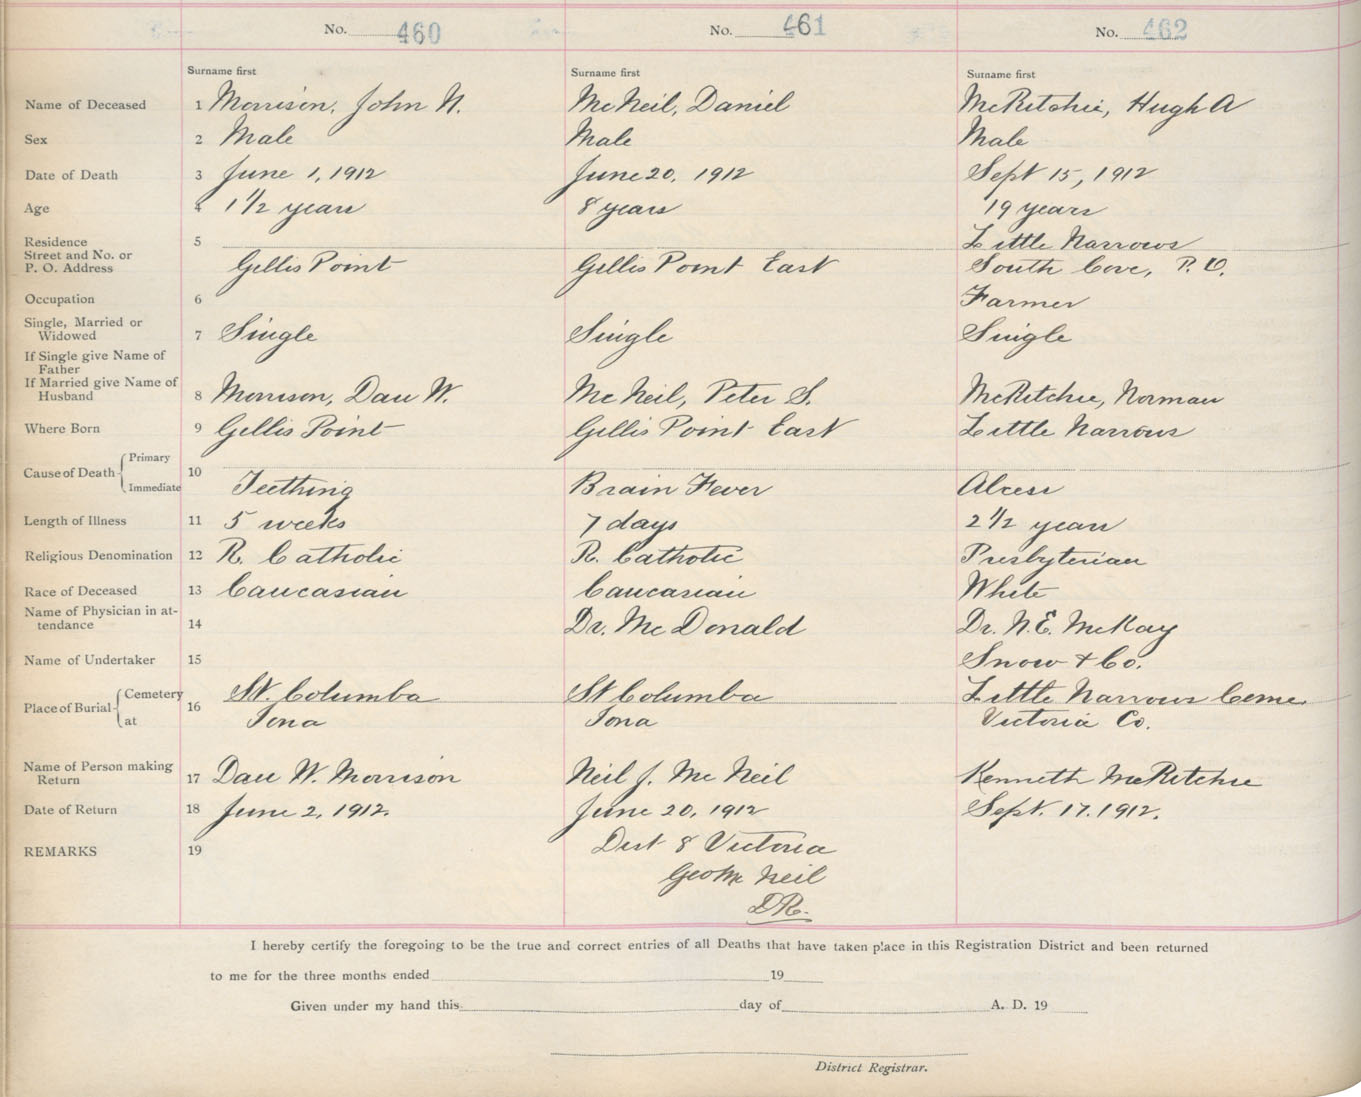 No. 460 No. 461 No. 462
Surname first Surname first Surname first
Name of Deceased 1 Morrison, John N. McNeil, Daniel McRitchie, Hugh A
Sex 2 Male Male Male
Date of Death 3 June 1, 1912 June 20, 1912 Sept 15, 1912
Age 4 1 1/2 years 8 years 19 years
Residence 5 Little Narrows
Street and No. or
P. O. Address Gillis Point Gillis Point East South Cove, P.O.
Occupation 6 Farmer
Single, Married or
Widowed 7 Single Single Single
If Single give Name of
Father
If Married give Name of
Husband 8 Morrison, Dan W. McNeil, Peter S. McRitchie, Norman
Where Born 9 Gillis Point Gillis Point East Little Narrows
Cause of Death Primary 10
Immediate Teething Brain Fever Abcess
Length of Illness 11 5 weeks 7 days 2 1/2 years
Religious Denomination 12 R. Catholic R. Catholic Presbyterian
Race of Deceased 13 Caucasian Caucasian White
Name of Physician in at-
tendance 14 Dr. McDonald Dr. N.E. McKay
Name of Undertaker 15 Snow & Co.
Place of Burial Cemetery 16 St. Columba St Columba Little Narrows Ceme
at Iona Iona Victoria Co.
Name of Person making
Return 17 Dan W. Morrison Neil J. McNeil Kenneth McRitchie
Date of Return 18 June 2, 1912. June 20, 1912 Sept. 17. 1912.
REMARKS 19 Dist 8 Victoria
Geo Mc Neil
D.R.
I hereby certify the foregoing to be the true and correct entries of all Deaths that have taken place in this Registration District and been returned
to me for the three months ended 19
Given under my hand this day of A. D. 19
District Registrar.